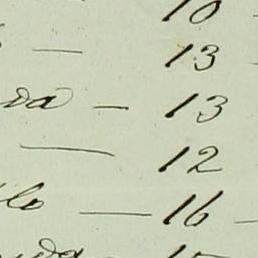 10
— 13
da — 13
— 12
lo — 16 —
da